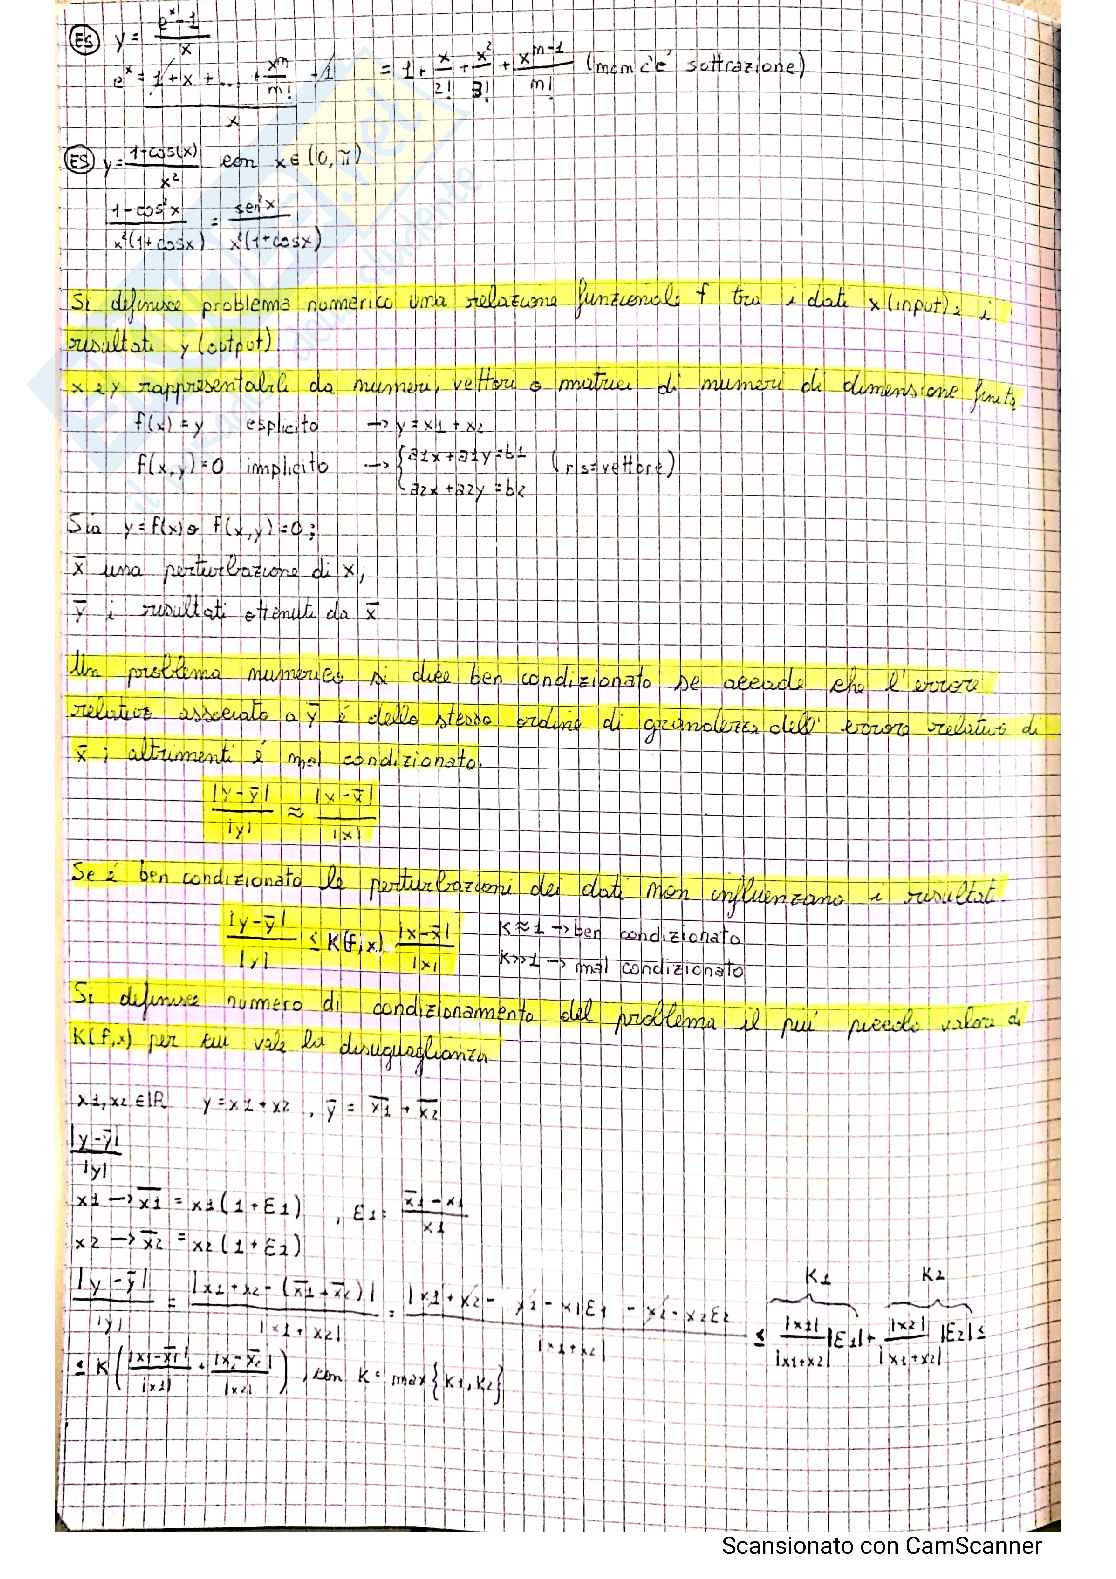 ES y = e^x-1 / x
e^x = 1+x+...+ x^m/m! -1 / x = 1+ x/2! + x²/3! + x^(m-1)/m! (non c'é sottrazione)
ES y = 1-cos(x) / x² con x∈(0,π)
1-cos²x / x²(1+cosx) = sen²x / x²(1+cosx)
Si definisce problema numerico una relazione funzionale f tra i dati x (input) e i
risultati y (output)
x e y rappresentabili da numeri, vettori o matrici di numeri di dimensione finita
f(x)=y esplicito → y=x1+x2
f(x,y)=0 implicito → { a1x+a1y=b1 (ris=vettore)
a2x+a2y=b2
Sia y=f(x) o f(x,y)=0;
x̄ una perturbazione di x,
ȳ i risultati ottenuti da x̄
Un problema numerico si dice ben condizionato se accade che l'errore
relativo associato a ȳ é dello stesso ordine di grandezza dell'errore relativo di
x̄; altrimenti é mal condizionato.
|y-ȳ| / |y| ≈ |x-x̄| / |x|
Se é ben condizionato le perturbazioni dei dati non influenzano i risultati.
|y-ȳ| / |y| ≤ K(f,x) |x-x̄| / |x| K≈1 → ben condizionato
K>>1 → mal condizionato
Si definisce numero di condizionamento del problema il piú piccolo valore di
K(f,x) per cui vale la disuguaglianza
x1,x2 ∈ℝ y=x1+x2 , ȳ = x̄1 + x̄2
|y-ȳ| / |y|
x1 → x̄1 = x1(1+ε1) , ε1= x̄1-x1 / x1
x2 → x̄2 = x2(1+ε2)
|y-ȳ| / |y| = |x1+x2-(x̄1+x̄2)| / |x1+x2| = |x1+x2-x1-x1ε1-x2-x2ε2 / |x1+x2| ≤ |x1| / |x1+x2| |ε1| + |x2| / |x1+x2| |ε2| ≤
K1 K2
≤ K ( |x1-x̄1| / |x1| + |x2-x̄2| / |x2| ) , con K=max{K1,K2}
Scansionato con CamScanner